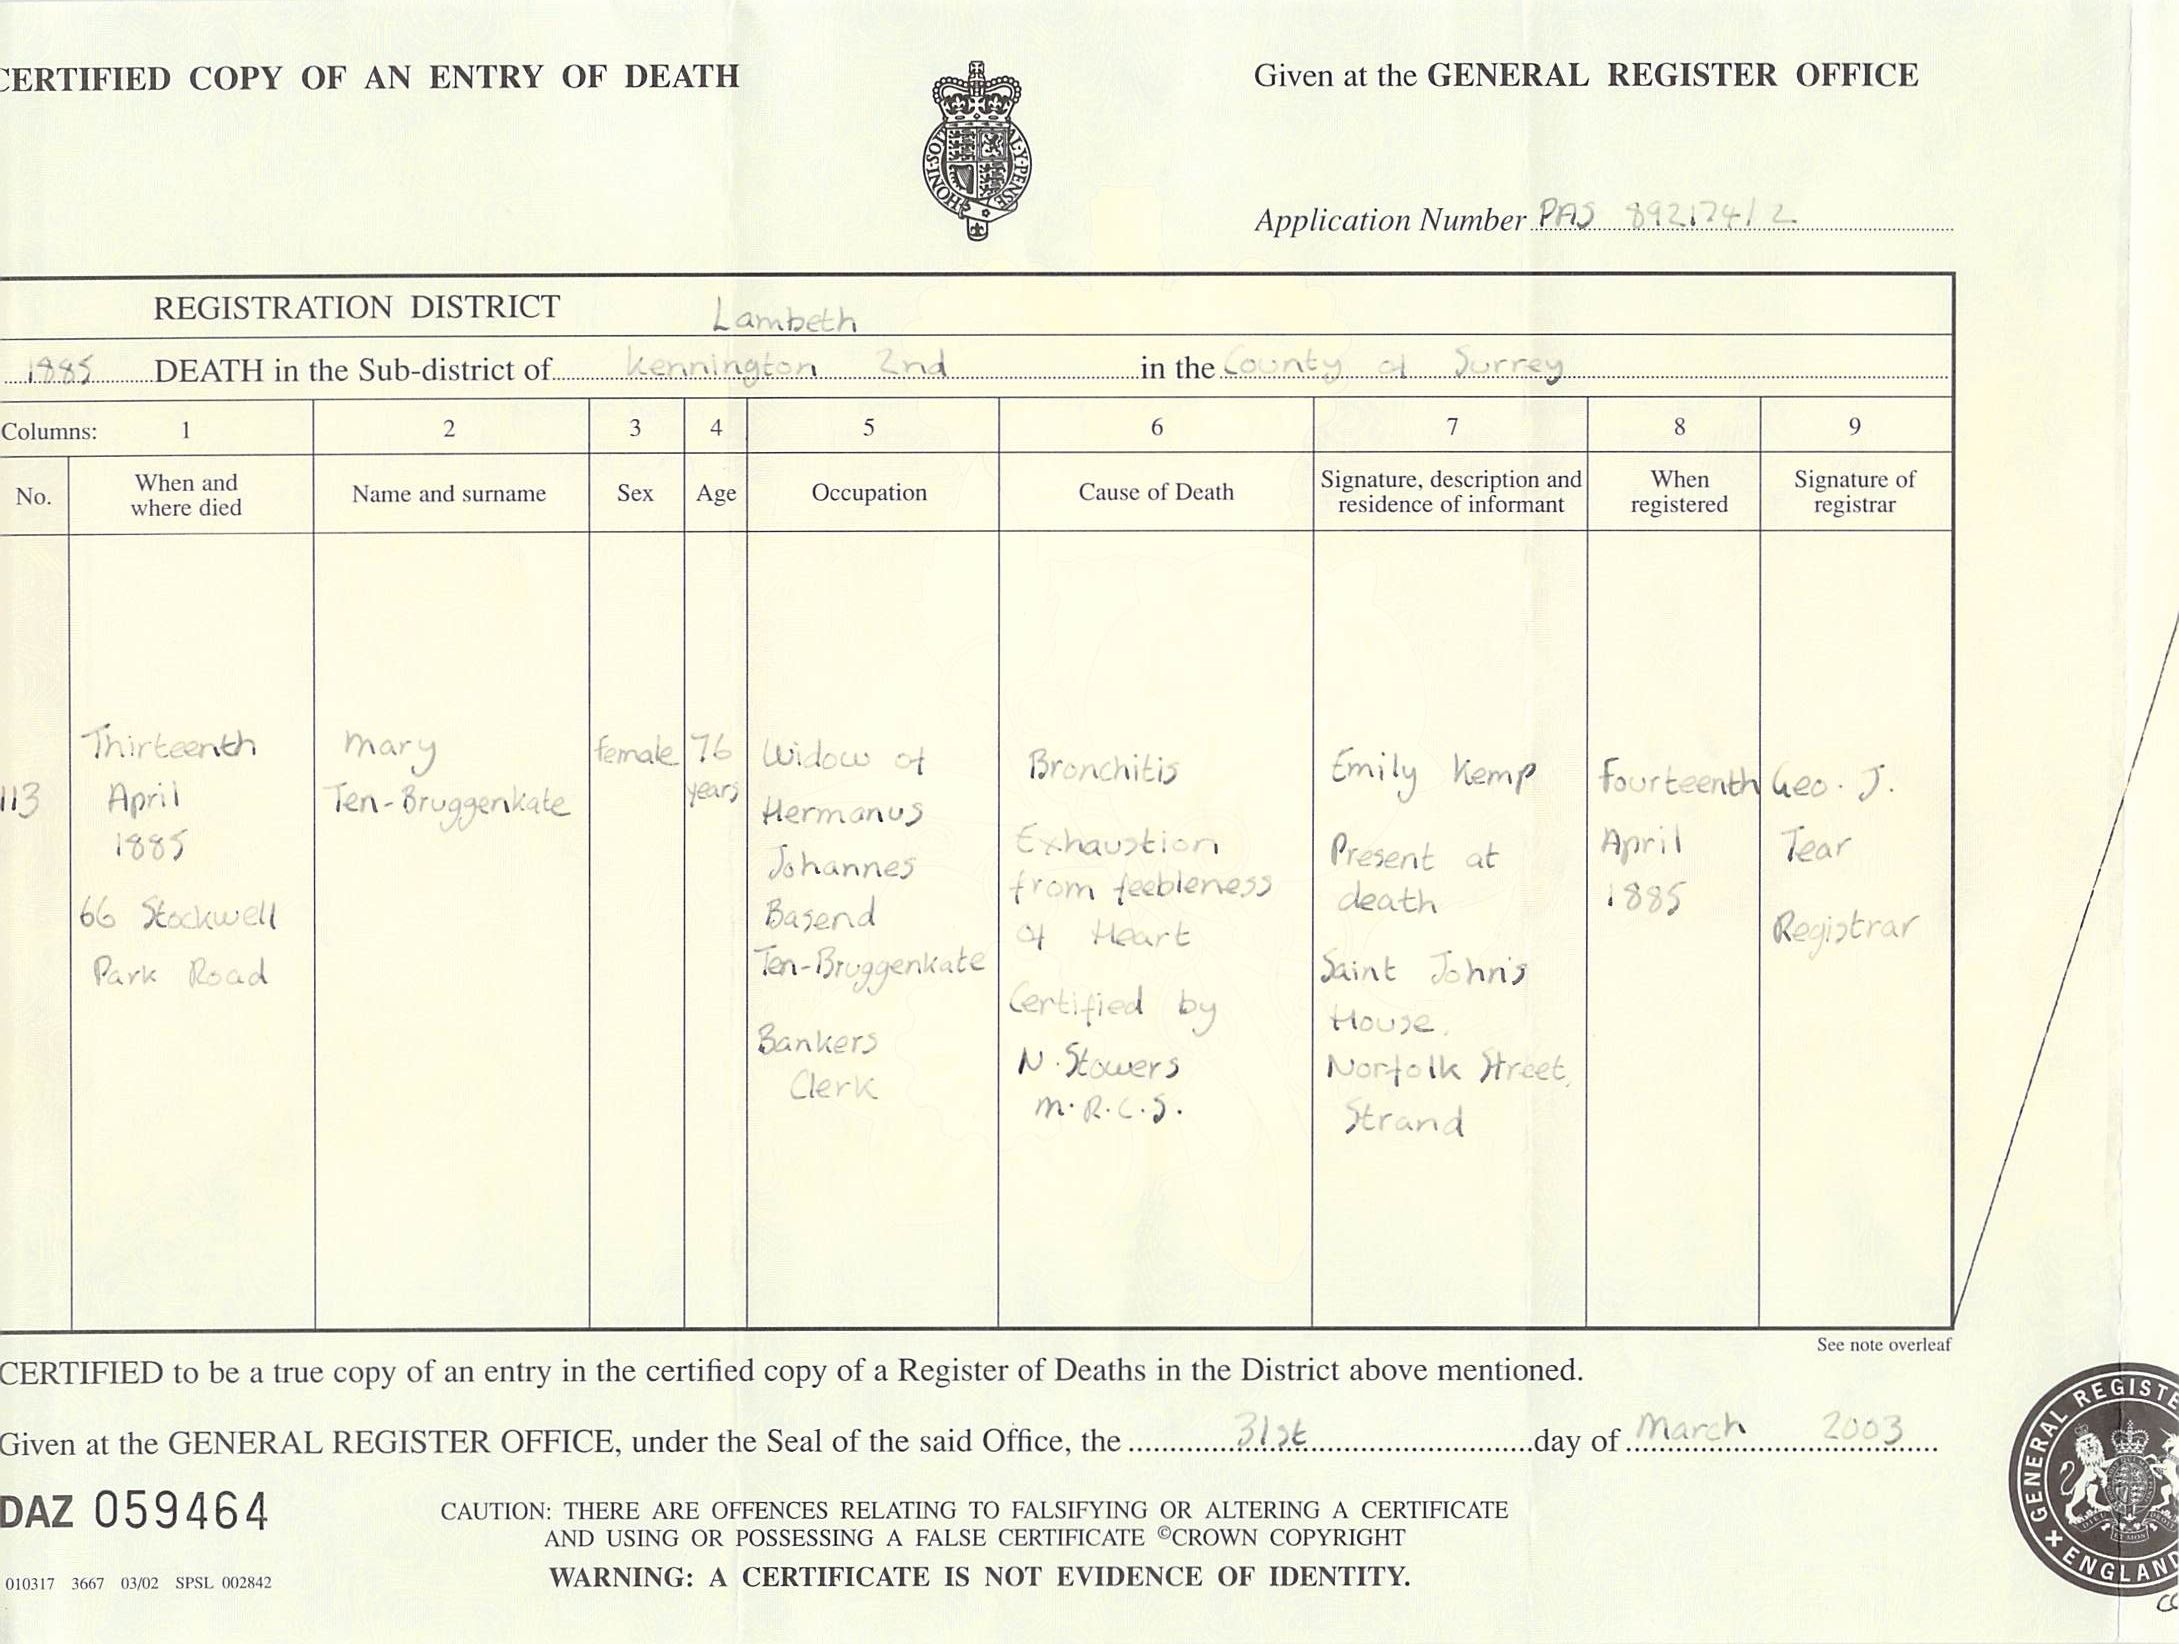 CERTIFIED COPY OF AN ENTRY OF DEATH
Given at the GENERAL REGISTER OFFICE
HONI·SOIT
AL·Y·PENSE
Application Number PAS 892174/2
REGISTRATION DISTRICT Lambeth
1885 DEATH in the Sub-district of Kennington 2nd in the County of Surrey
Columns: 1 2 3 4 5 6 7 8 9
No.
When and
where died
Name and surname
Sex
Age
Occupation
Cause of Death
Signature, description and
residence of informant
When
registered
Signature of
registrar
113
Thirteenth
April
1885
66 Stockwell
Park Road
Mary
Ten-Bruggenkate
Female
76
years
Widow of
Hermanus
Johannes
Basend
Ten-Bruggenkate
Bankers
Clerk
Bronchitis
Exhaustion
from feebleness
of Heart
Certified by
N. Stowers
M.R.C.S.
Emily Kemp
Present at
death
Saint John's
House.
Norfolk Street,
Strand
Fourteenth
April
1885
Geo. J.
Tear
Registrar
See note overleaf
CERTIFIED to be a true copy of an entry in the certified copy of a Register of Deaths in the District above mentioned.
Given at the GENERAL REGISTER OFFICE, under the Seal of the said Office, the 31st day of March 2003
DAZ 059464
CAUTION: THERE ARE OFFENCES RELATING TO FALSIFYING OR ALTERING A CERTIFICATE
AND USING OR POSSESSING A FALSE CERTIFICATE ©CROWN COPYRIGHT
WARNING: A CERTIFICATE IS NOT EVIDENCE OF IDENTITY.
010317 3667 03/02 SPSL 002842
GENERAL REGISTE
ENGLAN